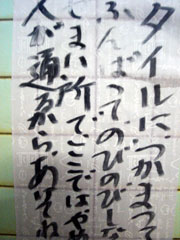 タイルにつかまって
ふんばってのびのびーな
せまい所でここではやめ
人が通るから、あそれ